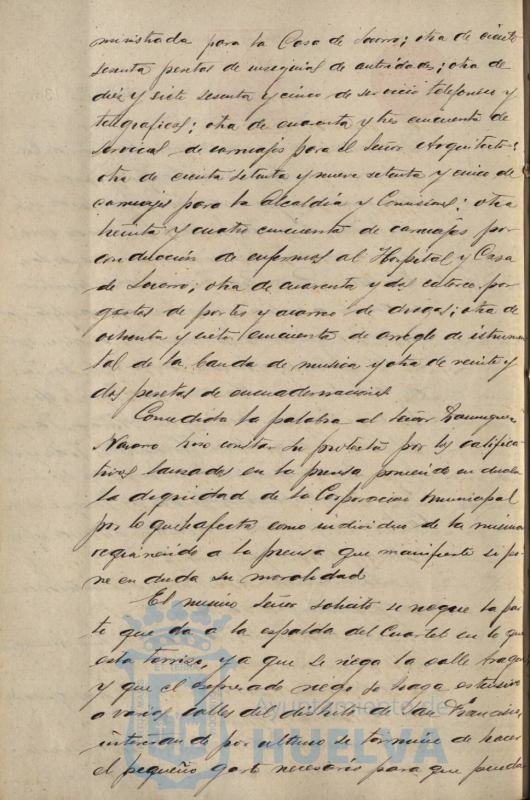 ministrada para la Casa de Socorro; otra de ciento
sesenta pesetas de insignias de autoridades; otra de
diez y siete sesenta y cinco de servicio telefonico y
telegraficos; otra de cuarenta y tres cincuenta de
servicios de carruajes para el Señor Arquitecto;
otra de ciento setenta y nueve setenta y cinco de
carruajes para la Alcaldía y Comisiones; otra
treinta y cuatro cincuenta de carruajes por
conducción de enfermos al Hospital y Casa
de Socorro; otra de cuarenta y dos catorce por
gastos de portes y acarreo de drogas; otra de
ochenta y siete cincuenta de arreglo de istrumen
tal de la banda de musica y otra de veinte y
dos pesetas de encuadernaciones
Concedida la palabra al Señor
Navarro hizo constar su protesta por los califica
tivos lanzados en la prensa poniendo en duda
la dignidad de la Corporacion municipal
por lo que le afecta como individuo de la misma
requiriendo a la prensa que manifieste si po
ne en duda su moralidad
El mismo Señor solicitó se riegue la par
te que da a la espalda del Cuartel en lo que
esta terriza, ya que se riega la calle
y que el expresado riego se haga extensivo
a varias calles del distrito de San Francisco,
interesando por ultimo se termine de hacer
el pequeño gasto necesario para que pueda
Ayuntamiento de
HUELVA